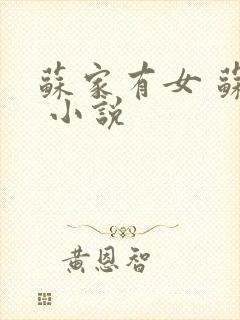 蘇家有女 蘇
小說
黃恩智